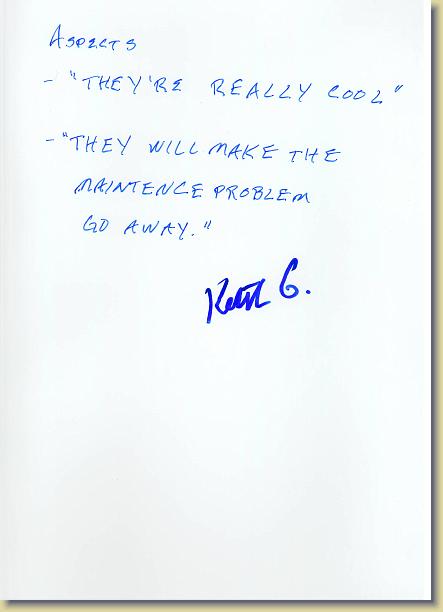 ASPECTS
- "THEY'RE REALLY COOL"
- "THEY WILL MAKE THE
MAINTENCE PROBLEM
GO AWAY."
Keith G.